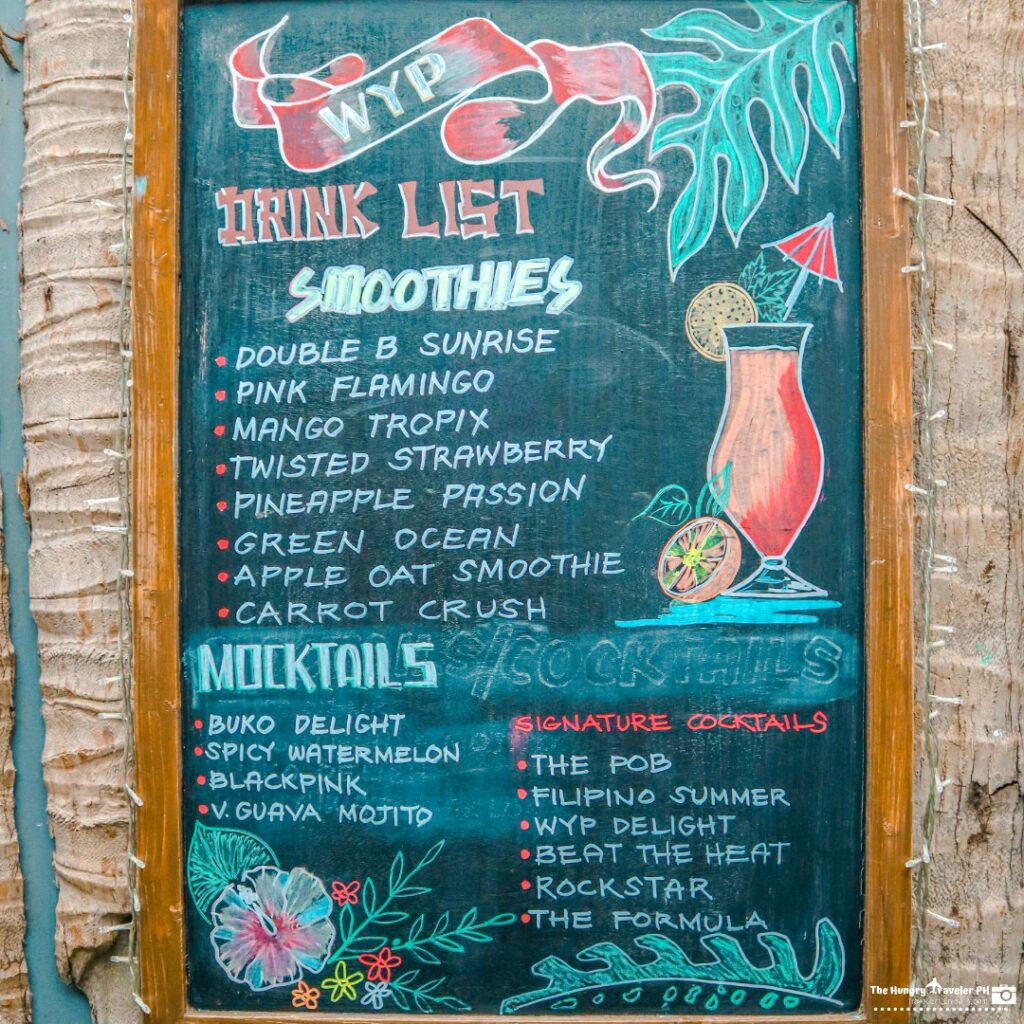 WYP
DRINK LIST
SMOOTHIES
DOUBLE B SUNRISE
PINK FLAMINGO
MANGO TROPIX
TWISTED STRAWBERRY
PINEAPPLE PASSION
GREEN OCEAN
APPLE OAT SMOOTHIE
CARROT CRUSH
MOCKTAILS S/COCKTAILS
BUKO DELIGHT
SPICY WATERMELON
BLACKPINK
V. GUAVA MOJITO
SIGNATURE COCKTAILS
THE POB
FILIPINO SUMMER
WYP DELIGHT
BEAT THE HEAT
ROCKSTAR
THE FORMULA
The Hungry Traveler PH